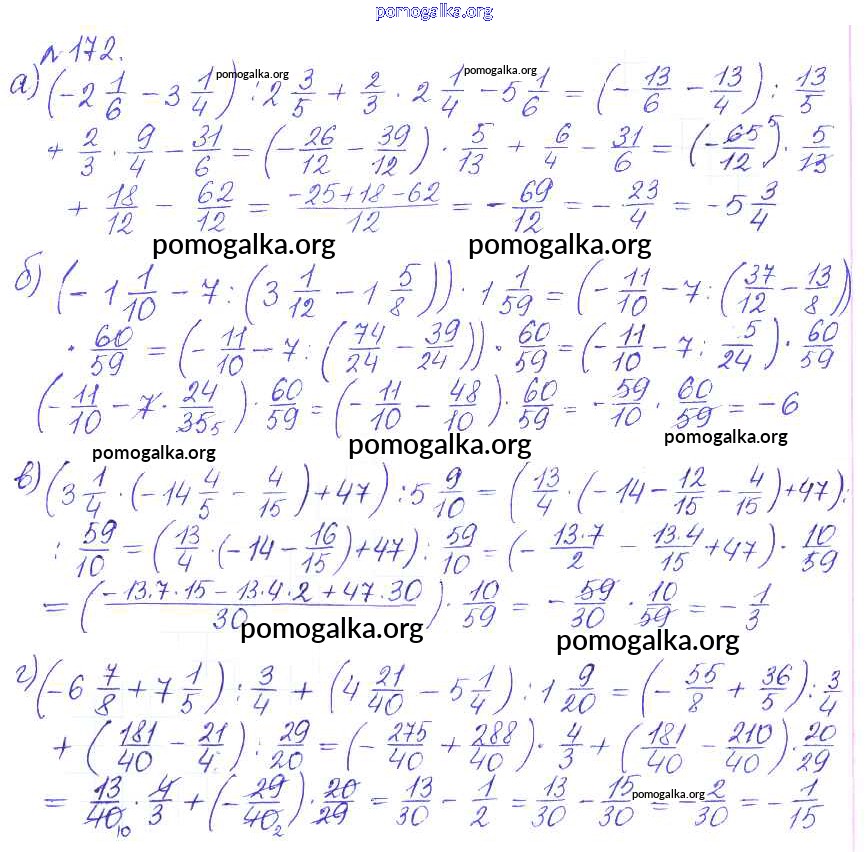 pomogalka.org
№172.
а) (-2 1/6 - 3 1/4) : 2 3/5 + 2/3 · 2 1/4 - 5 1/6 = (- 13/6 - 13/4) : 13/5
pomogalka.org pomogalka.org
+ 2/3 · 9/4 - 31/6 = (- 26/12 - 39/12) · 5/13 + 6/4 - 31/6 = (- 65/12)⁵ · 5/13
+ 18/12 - 62/12 = (-25+18-62)/12 = - 69/12 = - 23/4 = -5 3/4
pomogalka.org pomogalka.org
б) (- 1 1/10 - 7 : (3 1/12 - 1 5/8)) · 1 1/59 = (- 11/10 - 7 : (37/12 - 13/8))
· 60/59 = (- 11/10 - 7 : (74/24 - 39/24)) · 60/59 = (- 11/10 - 7 : 5/24) · 60/59
(- 11/10 - 7 · 24/35₅) · 60/59 = (- 11/10 - 48/10) · 60/59 = - 59/10 · 60/59 = -6
pomogalka.org pomogalka.org pomogalka.org
в) (3 1/4 · (-14 4/5 - 4/15) + 47) : 5 9/10 = (13/4 · (-14 - 12/15 - 4/15) + 47) :
: 59/10 = (13/4 · (-14 - 16/15) + 47) : 59/10 = (- 13·7/2 - 13·4/15 + 47) · 10/59
= ((-13·7·15 - 13·4·2 + 47·30)/30) · 10/59 = - 59/30 · 10/59 = - 1/3
pomogalka.org pomogalka.org
г) (-6 7/8 + 7 1/5) : 3/4 + (4 21/40 - 5 1/4) : 1 9/20 = (- 55/8 + 36/5) : 3/4
+ (181/40 - 21/4) : 29/20 = (- 275/40 + 288/40) · 4/3 + (181/40 - 210/40) · 20/29
= 13/40₁₀ · 4/3 + (- 29/40₂) · 20/29 = 13/30 - 1/2 = 13/30 - 15/30 = - 2/30 = - 1/15
pomogalka.org